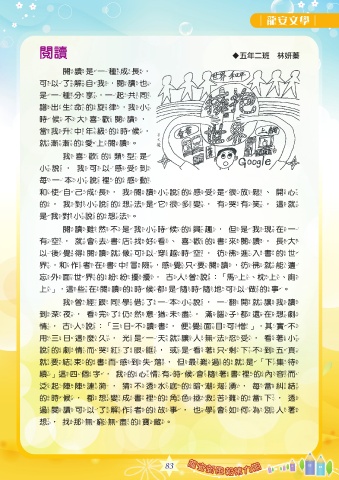 龍安文學
閱讀
◆五年二班 林妍蓁
閱讀是一種成長，
可以了解自我，閱讀也
是一種分享，一起共同
譜出生命的旋律，我小
時候不大喜歡閱讀，
當我升中年級的時候，
就漸漸的愛上閱讀。
我喜歡的類型是
小說，我可以感受到
每一本小說裡的感動
和使自己成長，我閱讀小說的感受是很放鬆、開心
的，我對小說的想法是它很多變、有哭有笑，這就
是我對小說的想法。
閱讀雖然不是我小時候的興趣，但是我現在一
有空，就會去書店找好看、喜歡的書來閱讀，長大
以後覺得閱讀就像可以穿越時空，彷彿進入書的世
界，和作者在書中冒險，感覺只要閱讀，彷彿就能遺
忘外面世界的紛紛擾擾，古人曾說：「馬上、枕上、廁
上」，這些在閱讀的時候都是隨時隨地可以做的事。
我曾經跟同學借了一本小說，一翻開就讓我讀
到深夜，看完了仍然意猶未盡，滿腦子都還在想劇
情，古人說：「三日不讀書，便覺面目可憎」，其實不
用三日這麼久，光是一天就讓人無法忍受，看著小
說的劇情而哭紅了眼眶，或是看著只剩下不到五頁
就要結束的書而感到失落，但最難過的就是「下集待
續」這四個字，我的心情有時候會隨著書裡的內容而
泛起陣陣漣漪，猜不透水底的暗潮洶湧，每當糾結
的時候，都想變成書裡的角色拯救苦難的當下，透
過閱讀可以了解作者的故事，也學會如何為別人著
想，找那無窮無盡的寶藏。
世界和平
擁抱
世界
看書
上網
Google
83